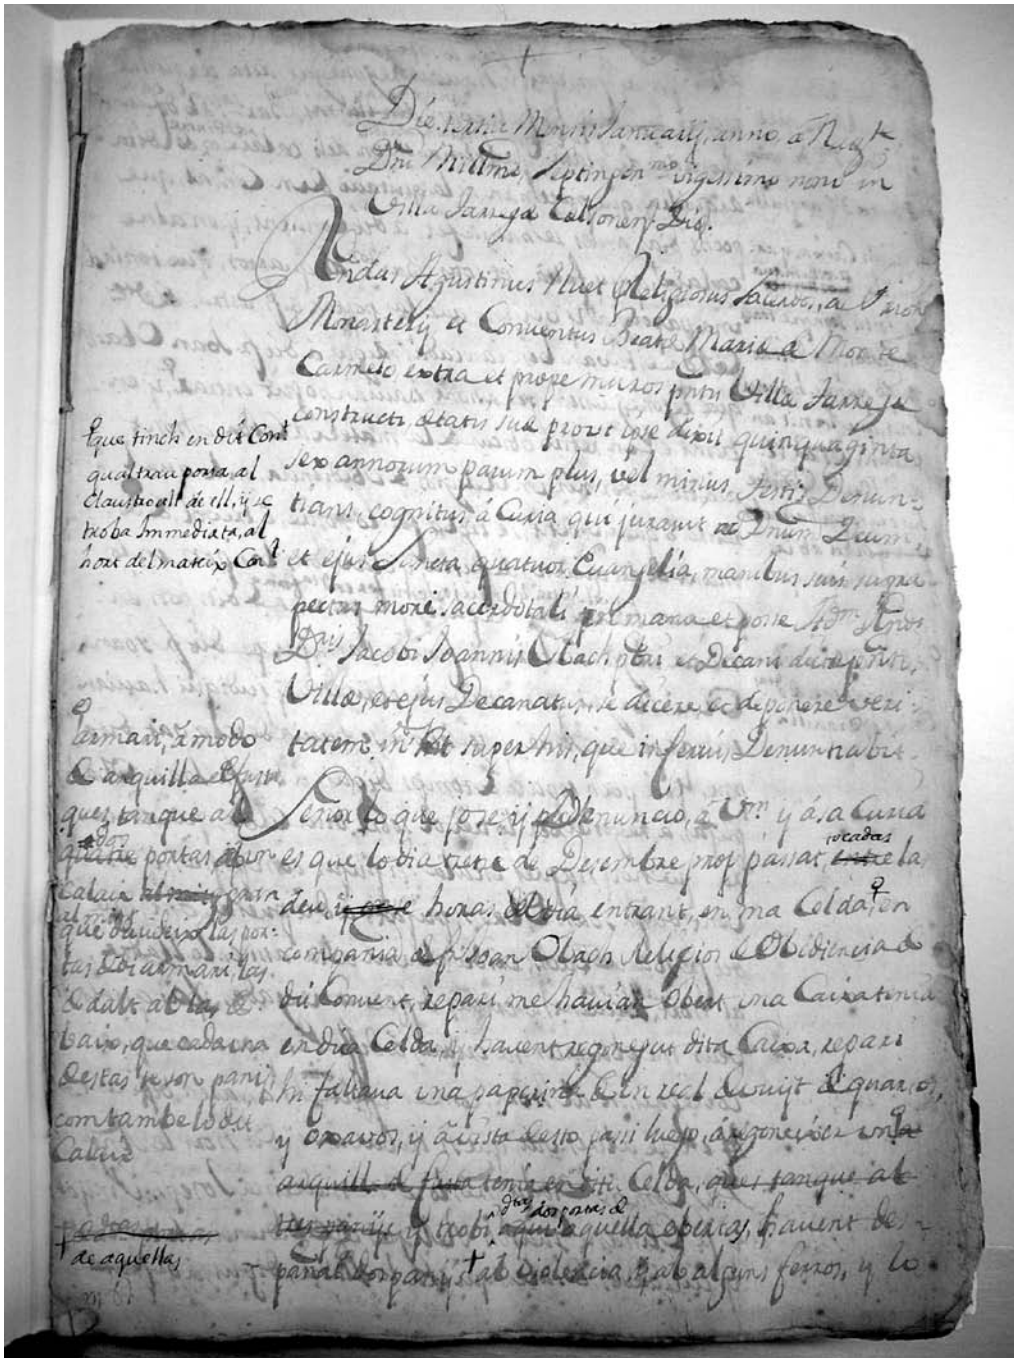 Die tertia Mensis Januarij, anno, a Nat.te
Dni Millmo Septingen.mo vigessimo nono in
Villa Tarregæ Celsonen. Diœ.
Rndus Agustinus Huet Religiosus Sacerdos, a
Monasterij et Conventus Beatæ Mariæ a Monte
Carmelo, extra et prope muros pntis Villæ Tarregæ
constructi, ætatis suæ prout ipse dixit quinquaginta
sex annorum parum plus, vel minus, testis Denun-
tians, cognitus â Curia qui juravit Dnum Deum
et ejus Sancta quatuor Evangelia, manibus suis supra
pectus more sacerdotali in manu et posse Adm. Rndi
Dnis Jacobi Joannis Obach pbri et Decani dictæ pntis
Villæ, et ejus Decanatus, se dicere, et deponere veri-
tatem in super his, que inferius Denuntiabit
Señor lo que jo se y denuncio, â Vm. y á sa Curia
es que lo dia tretze de Desembre prop passat, entre las
tocadas
deu y onse horas del dia entrant, en ma Celda, en
compañia de fr. Joan Obach Religios de Obediencia de
dit Convent, repari me havian obert una Caixa tenia
en dita Celda, y havent regonegut dita Caixa, repari
hi faltava una paperina de un real de vuyt de quartos,
y oxavos, y â vista de esto passi luego, â regoneixer una
arquilla de fusta tenia en dita Celda, ques tanque ab
dtas dos portas de
tres panÿs y trobi aqui aquella obertas, havent des-
panat dos panÿs ab violencia, y ab alguns ferros, y lo
que tinch en dit Cont
qual trau porta, al
Claustro alt de ell, y se
troba Immediata, al
hort del mateix Cont
armari, â modo
de arquilla de fusta
ques tanque ab
dos
quatre portas, ab un
Calaix al mig para
al mitg
que divideix las por-
tas de dit armari, las
de dalt ab las de
baix, que cada una
de estas te son panÿ
com tambe lo dit
Calaix
de aquellas